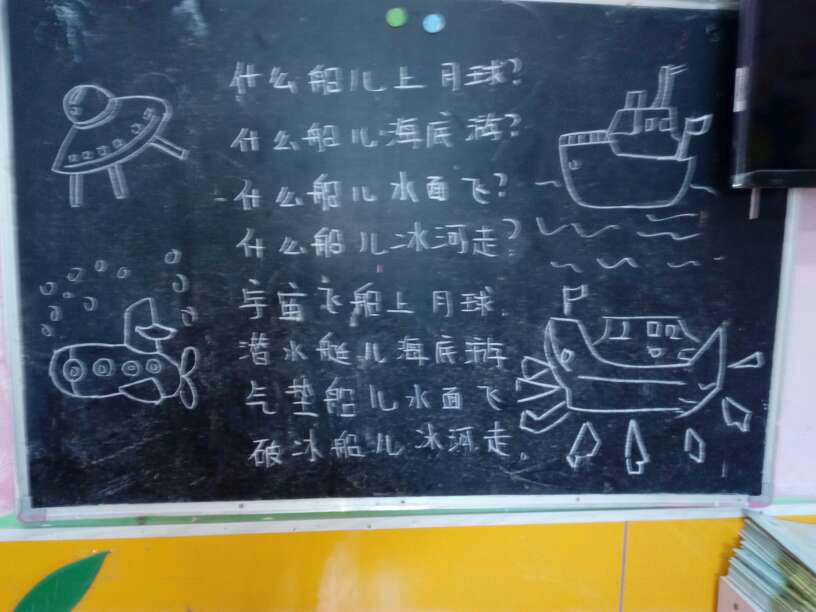 什么船儿上月球?
什么船儿海底游?
什么船儿水面飞?
什么船儿冰河走?
宇宙飞船上月球.
潜水艇儿海底游
气垫船儿水面飞
破冰船儿冰河走。